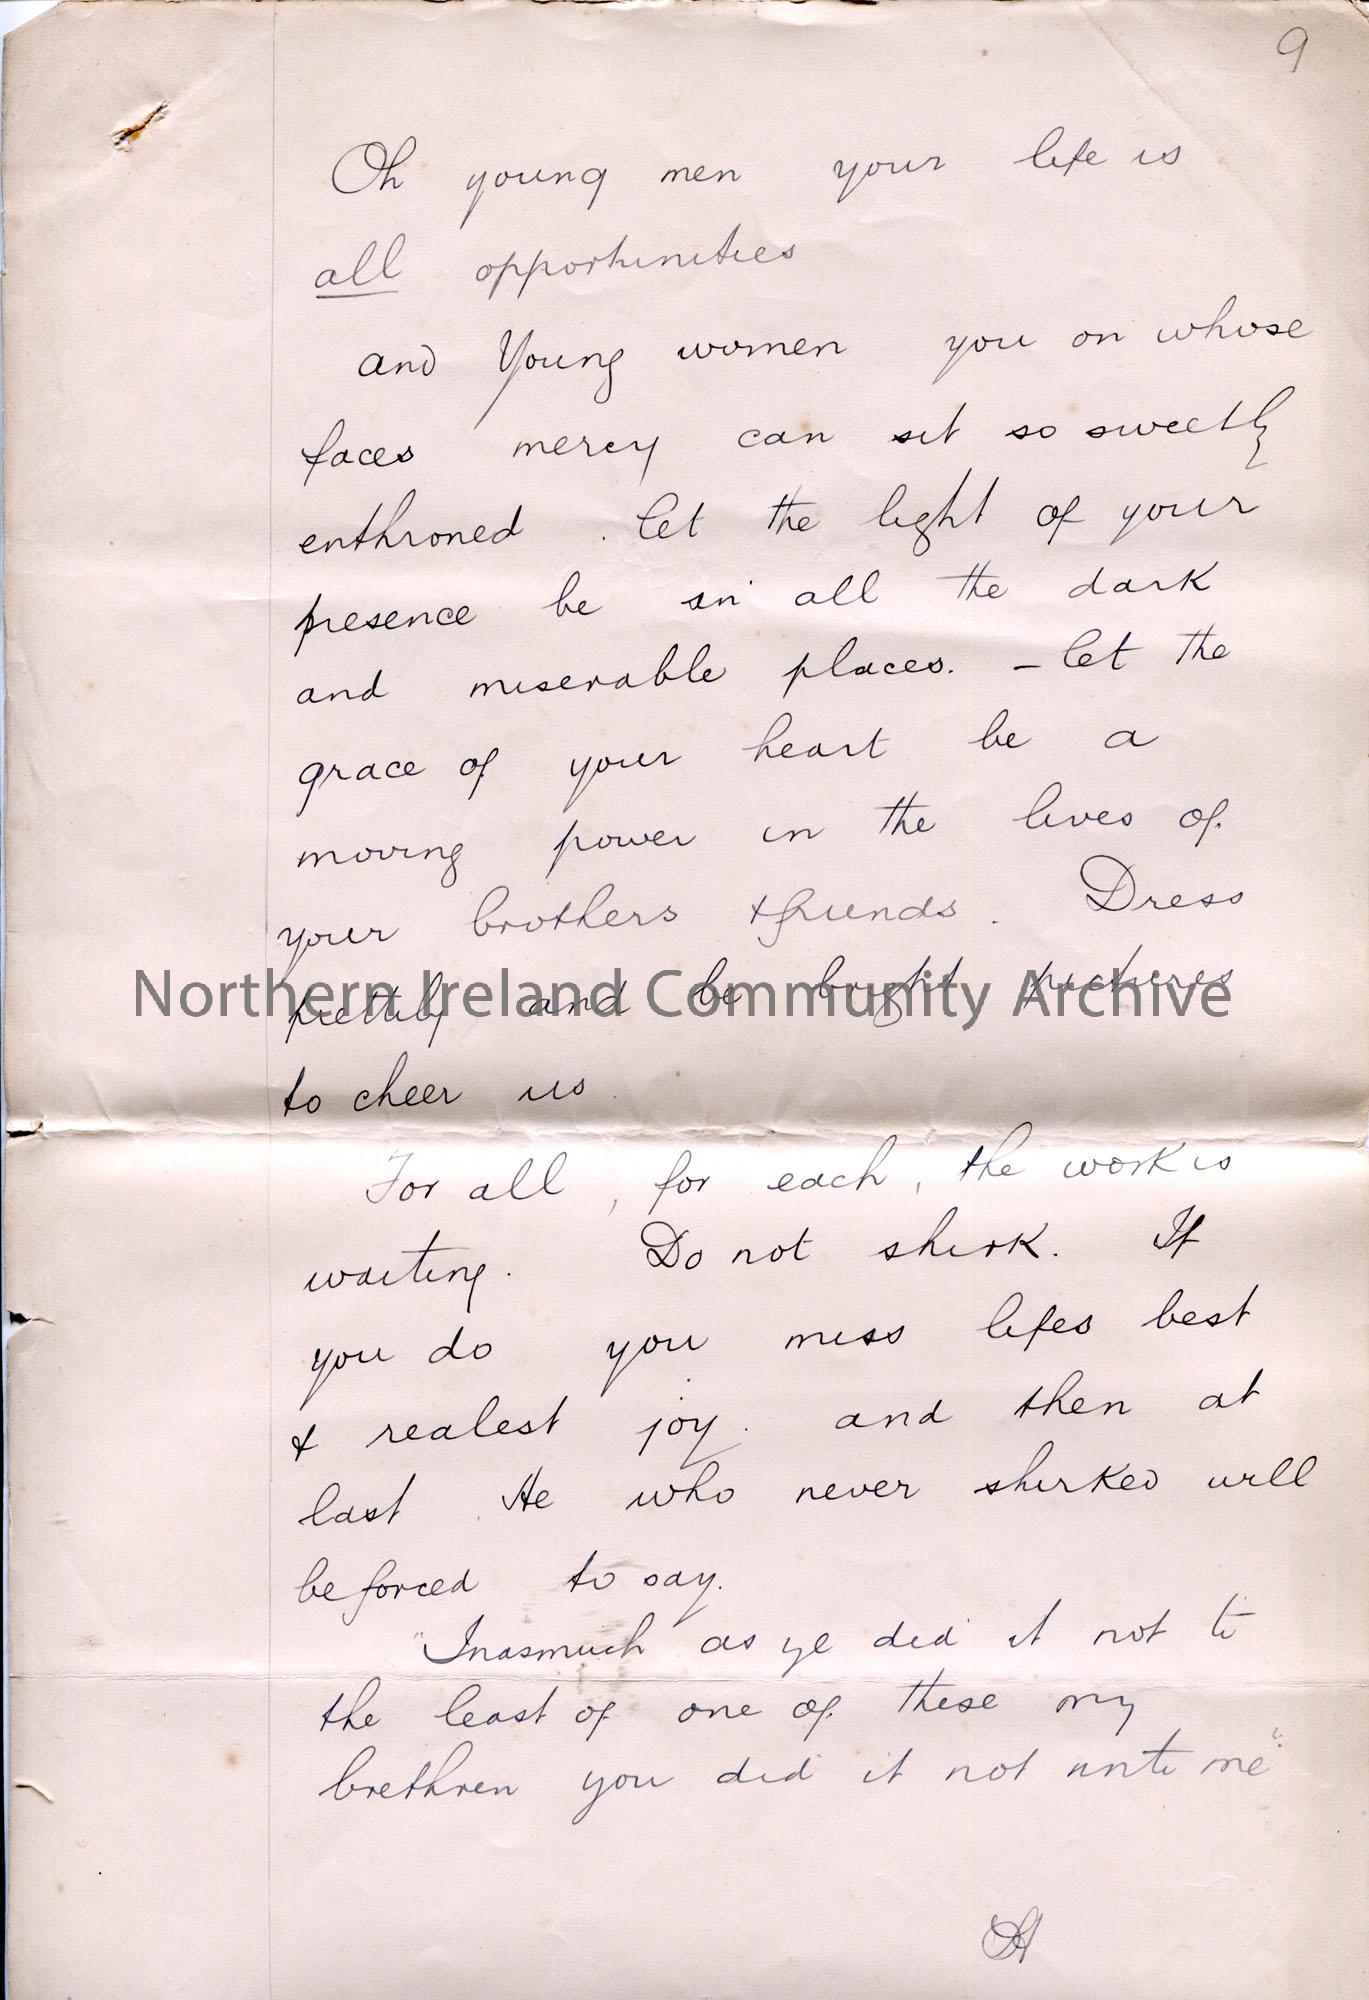 9
Oh young men your life is
all opportunities
and Young women you on whose
faces mercy can sit so sweetly
enthroned . let the light of your
presence be in all the dark
and miserable places. – let the
grace of your heart be a
moving power in the lives of
your brothers & friends . Dress
prettily and be bright pictures
Northern Ireland Community Archive
to cheer us
For all , for each , the work is
waiting . Do not shirk . If
you do you miss lifes best
& realest joy . and then at
last . He who never shirked will
be forced to say .
"Inasmuch as ye did it not to
the least of one of these my
brethren you did it not unto me"